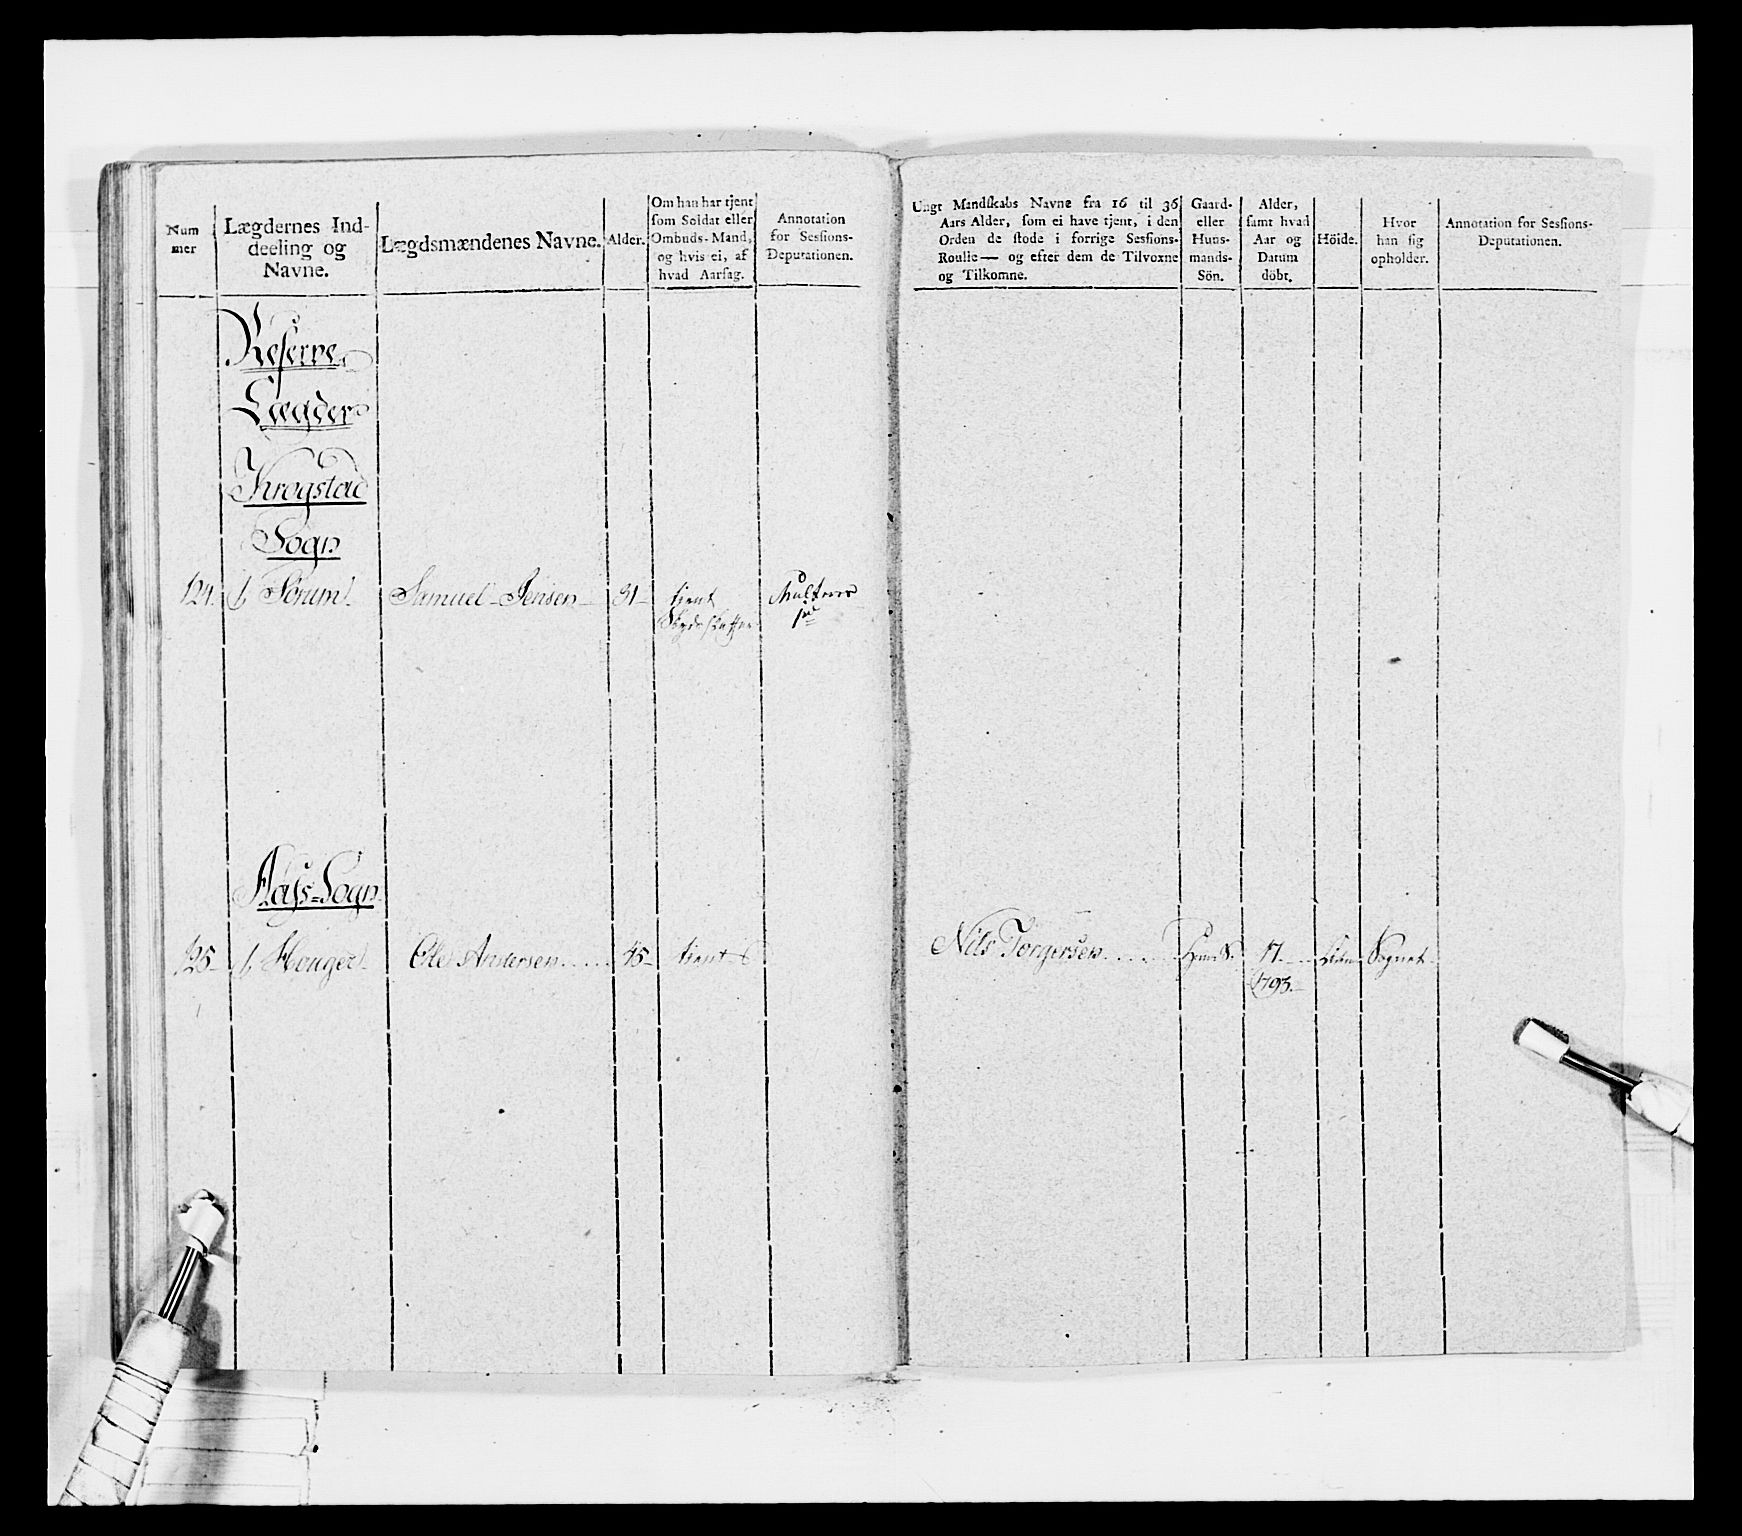 Num
mer
Lægdernes Ind-
deeling og
Navne.
Lægdsmændenes Navne.
Alder.
Om han har tjent
som Soldat eller
Ombuds-Mand,
og hvis ei, af
hvad Aarsag.
Annotation
for Sessions-
Deputationen.
Ungt Mandskabs Navne fra 16 til 36
Aars Alder, som ei have tjent, i den
Orden de stode i forrige Sessions-
Roulle— og efter dem de Tilvoxne
og Tilkomne.
Gaard-
eller
Huus-
mands-
Sön.
Alder,
samt hvad
Aar og
Datum
döbt.
Höide.
Hvor
han sig
opholder.
Annotation for Sessions-
Deputationen.
Reserve
Lægder
Krogstad
Sogn
124. 1, Sörum Samuel Jensen 31 tient
Aas-Sogn
125 1, Houger Ole Andersen 45 tient Nils Torgersen Huus S. 17. liden Sognet
1793.